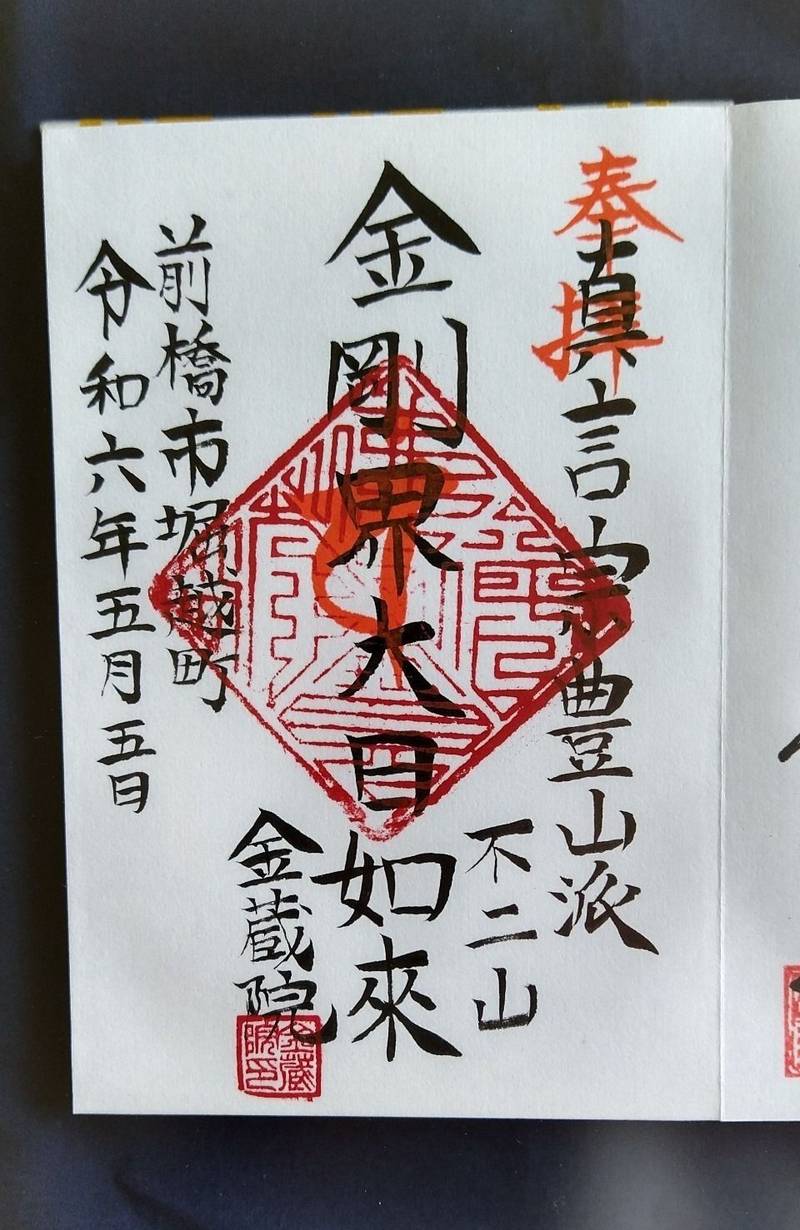 奉拝
真言宗豊山派
不二山
金剛界大日如來
金蔵院
前橋市堀越町
令和六年五月五日
金蔵院印